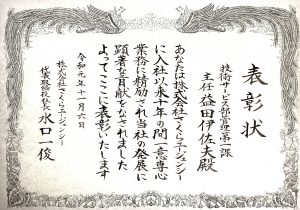 表彰状
技術サービス部管理第一課
主任 益田伊佐夫殿
あなたは株式会社さくらエージェンシー
に入社以来十年の間一意専心
業務に精励され当社の発展に
顕著な貢献をなされました
よってここに表彰いたします
令和元年十月六日
株式会社さくらエージェンシー
代表取締役社長 水口一俊